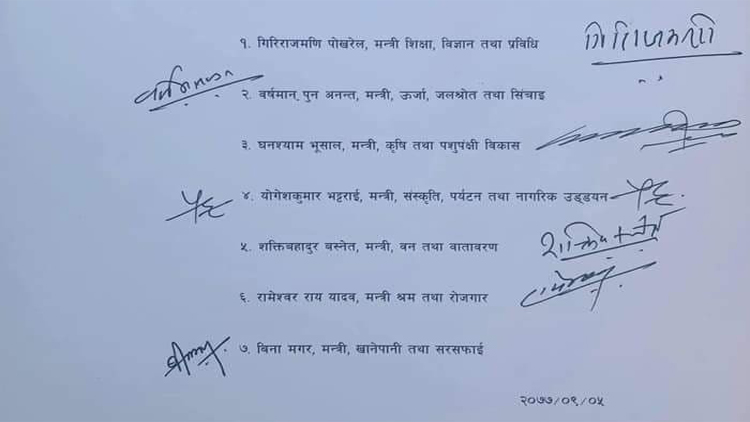 १. गिरिराजमणि पोखरेल, मन्त्री शिक्षा, विज्ञान तथा प्रविधि गिरिराजमणि
२. वर्षमान पुन अनन्त, मन्त्री, ऊर्जा, जलश्रोत तथा सिंचाइ
३. घनश्याम भूसाल, मन्त्री, कृषि तथा पशुपंक्षी विकास
४. योगेशकुमार भट्टराई, मन्त्री, संस्कृति, पर्यटन तथा नागरिक उड्डयन
५. शक्तिबहादुर बस्नेत, मन्त्री, वन तथा वातावरण
६. रामेश्वर राय यादव, मन्त्री श्रम तथा रोजगार
७. बिना मगर, मन्त्री, खानेपानी तथा सरसफाई
२०७७/०९/०५